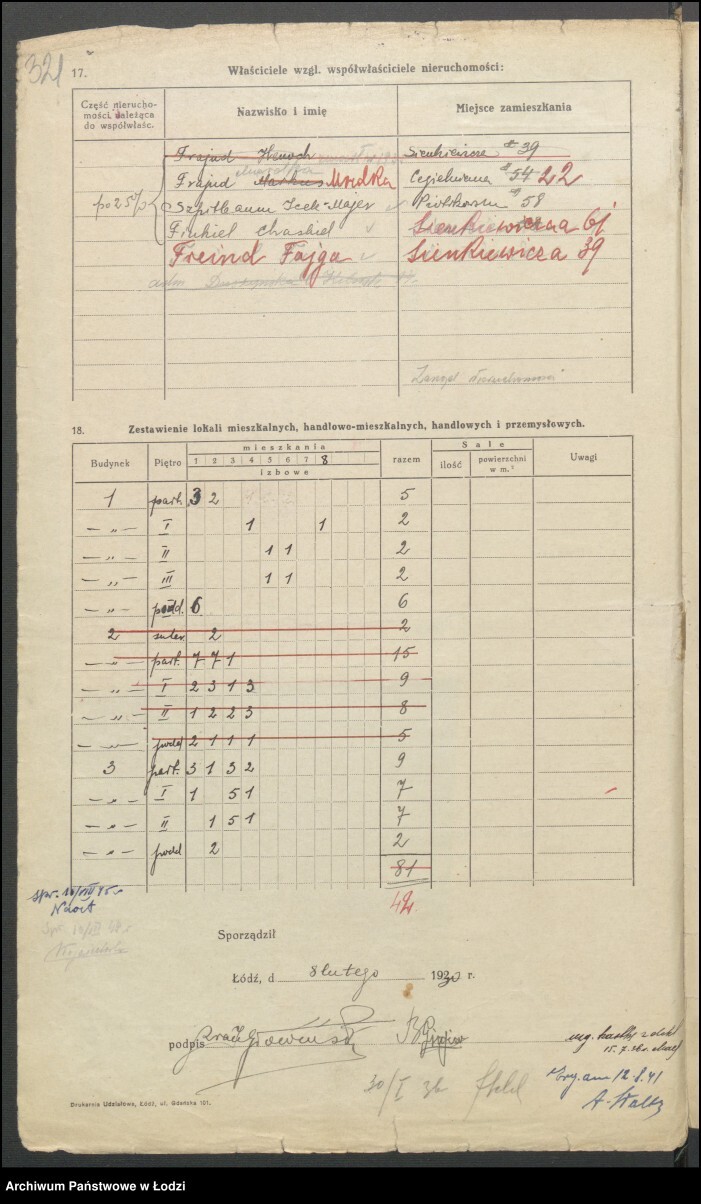 321
17. Właściciele wzgl. współwłaściciele nieruchomości:
Część nierucho-
mości, należąca
do współwłaśc.
Nazwisko i imię
Miejsce zamieszkania
Frajnd Henoch Sienkiewicza # 39
po 25% Frajnd Markus Mordka Cegielniana # 54 22
Szpilbaum Icek-Majer Piotrkowska 58
Frukiel Chaskiel Sienkiewicza 61
Freind Fajga Sienkiewicza 39
Zarząd Nieruchomości
18. Zestawienie lokali mieszkalnych, handlowo-mieszkalnych, handlowych i przemysłowych.
Budynek Piętro mieszkania razem Sale Uwagi
1 2 3 4 5 6 7 8 ilość powierzchni w m.²
izbowe
1 part. 3 2 5
— „ — I 1 1 2
— „ — II 1 1 2
— „ — III 1 1 2
— „ — podd. 6 6
2 suter. 2 2
— „ — part. 7 7 1 15
— „ — I 2 3 1 3 9
— „ — II 1 2 2 3 8
— „ — podd 2 1 1 1 5
3 part. 3 1 3 2 9
— „ — I 1 5 1 7
— „ — II 1 5 1 7
— „ — podd 2 2
81
42.
Sporządził
Łódź, d 8 lutego 1930 r.
podpis
30/I 36
12.8.41
Drukarnia Udziałowa, Łódź, ul. Gdańska 101.
Archiwum Państwowe w Łodzi